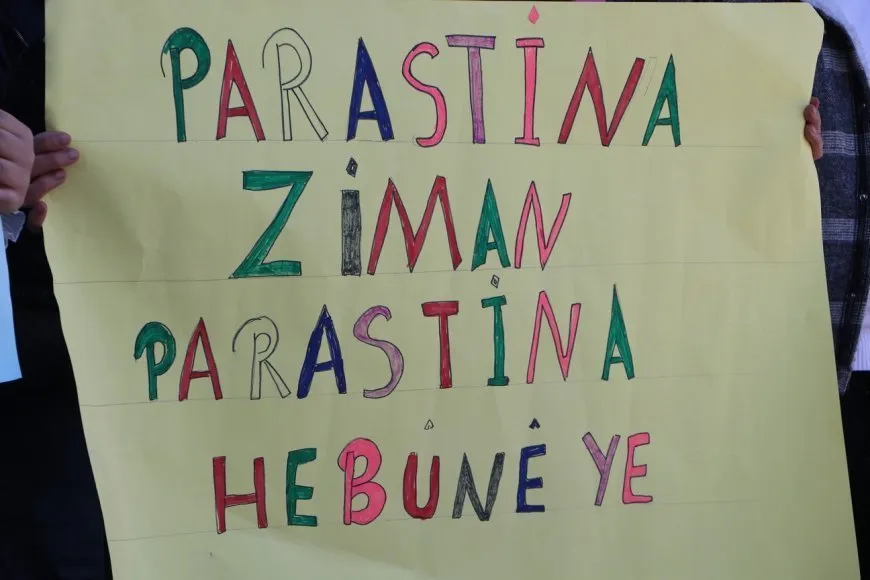 PARASTİNA
ZİMAN
PARASTİNA
HEBÛNÊ YE